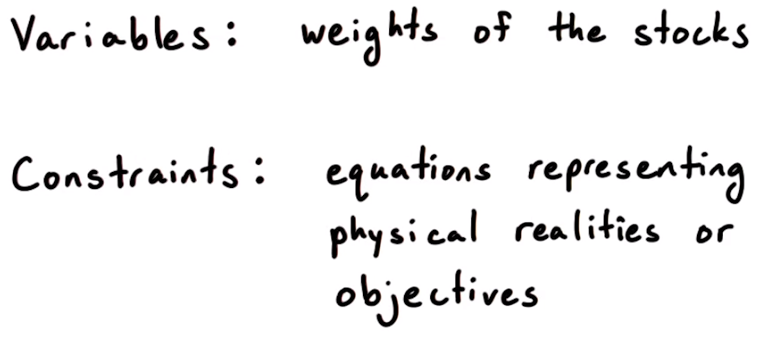 Variables: weights of the stocks
Constraints: equations representing
physical realities or
objectives